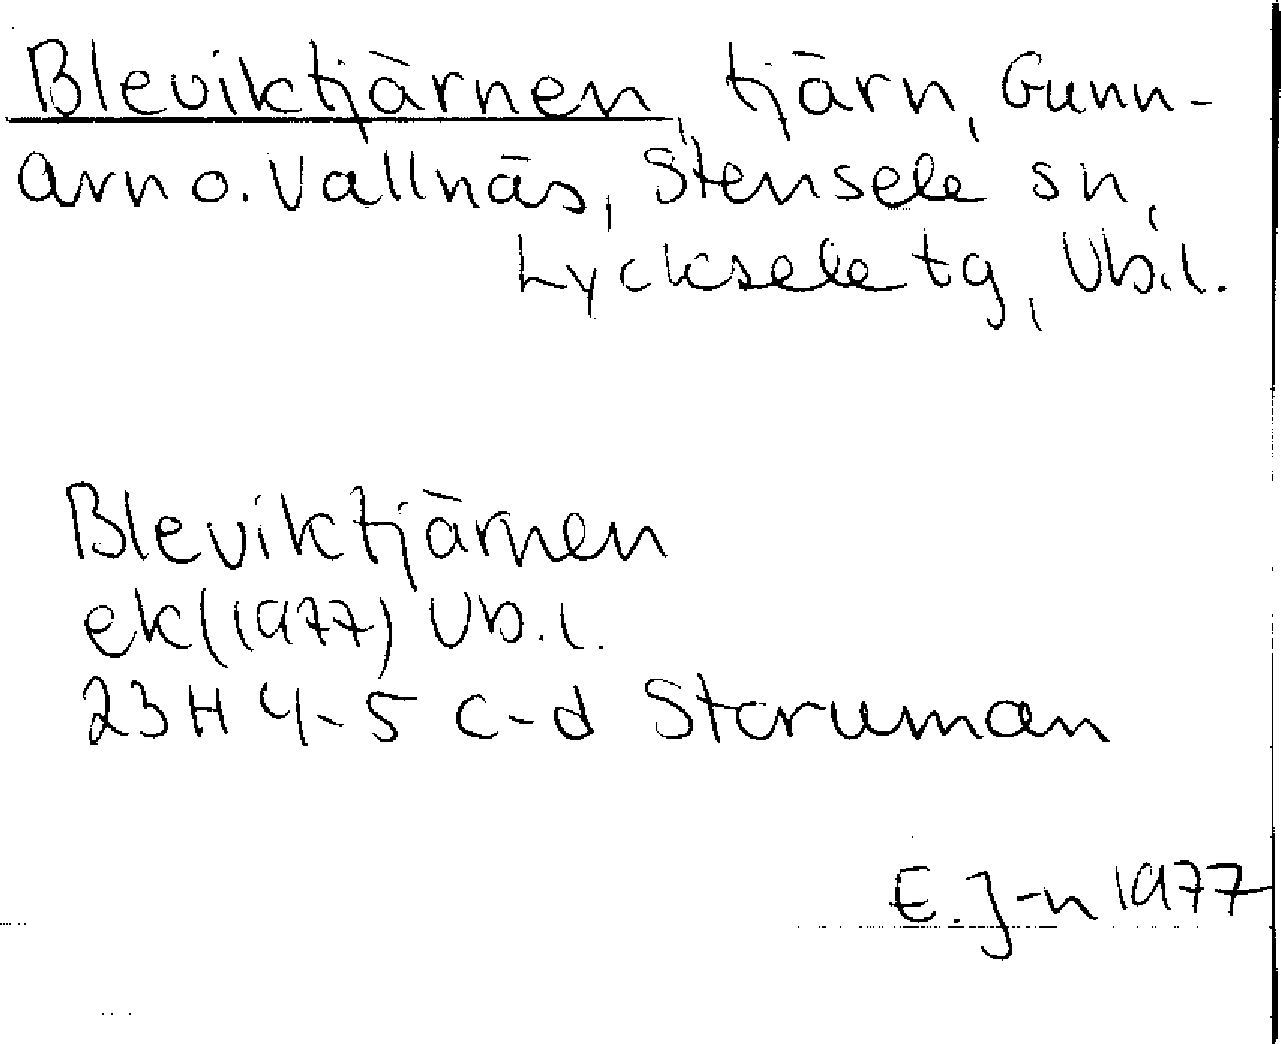 Bleviktjärnen, tjärn, Gunn-
arn o. Vallnäs, Stensele sn,
Lycksele tg, Vb.l.
Bleviktjärnen
ek (1977) Vb.l.
23H 4-5 c-d Storuman
E. J-n 1977